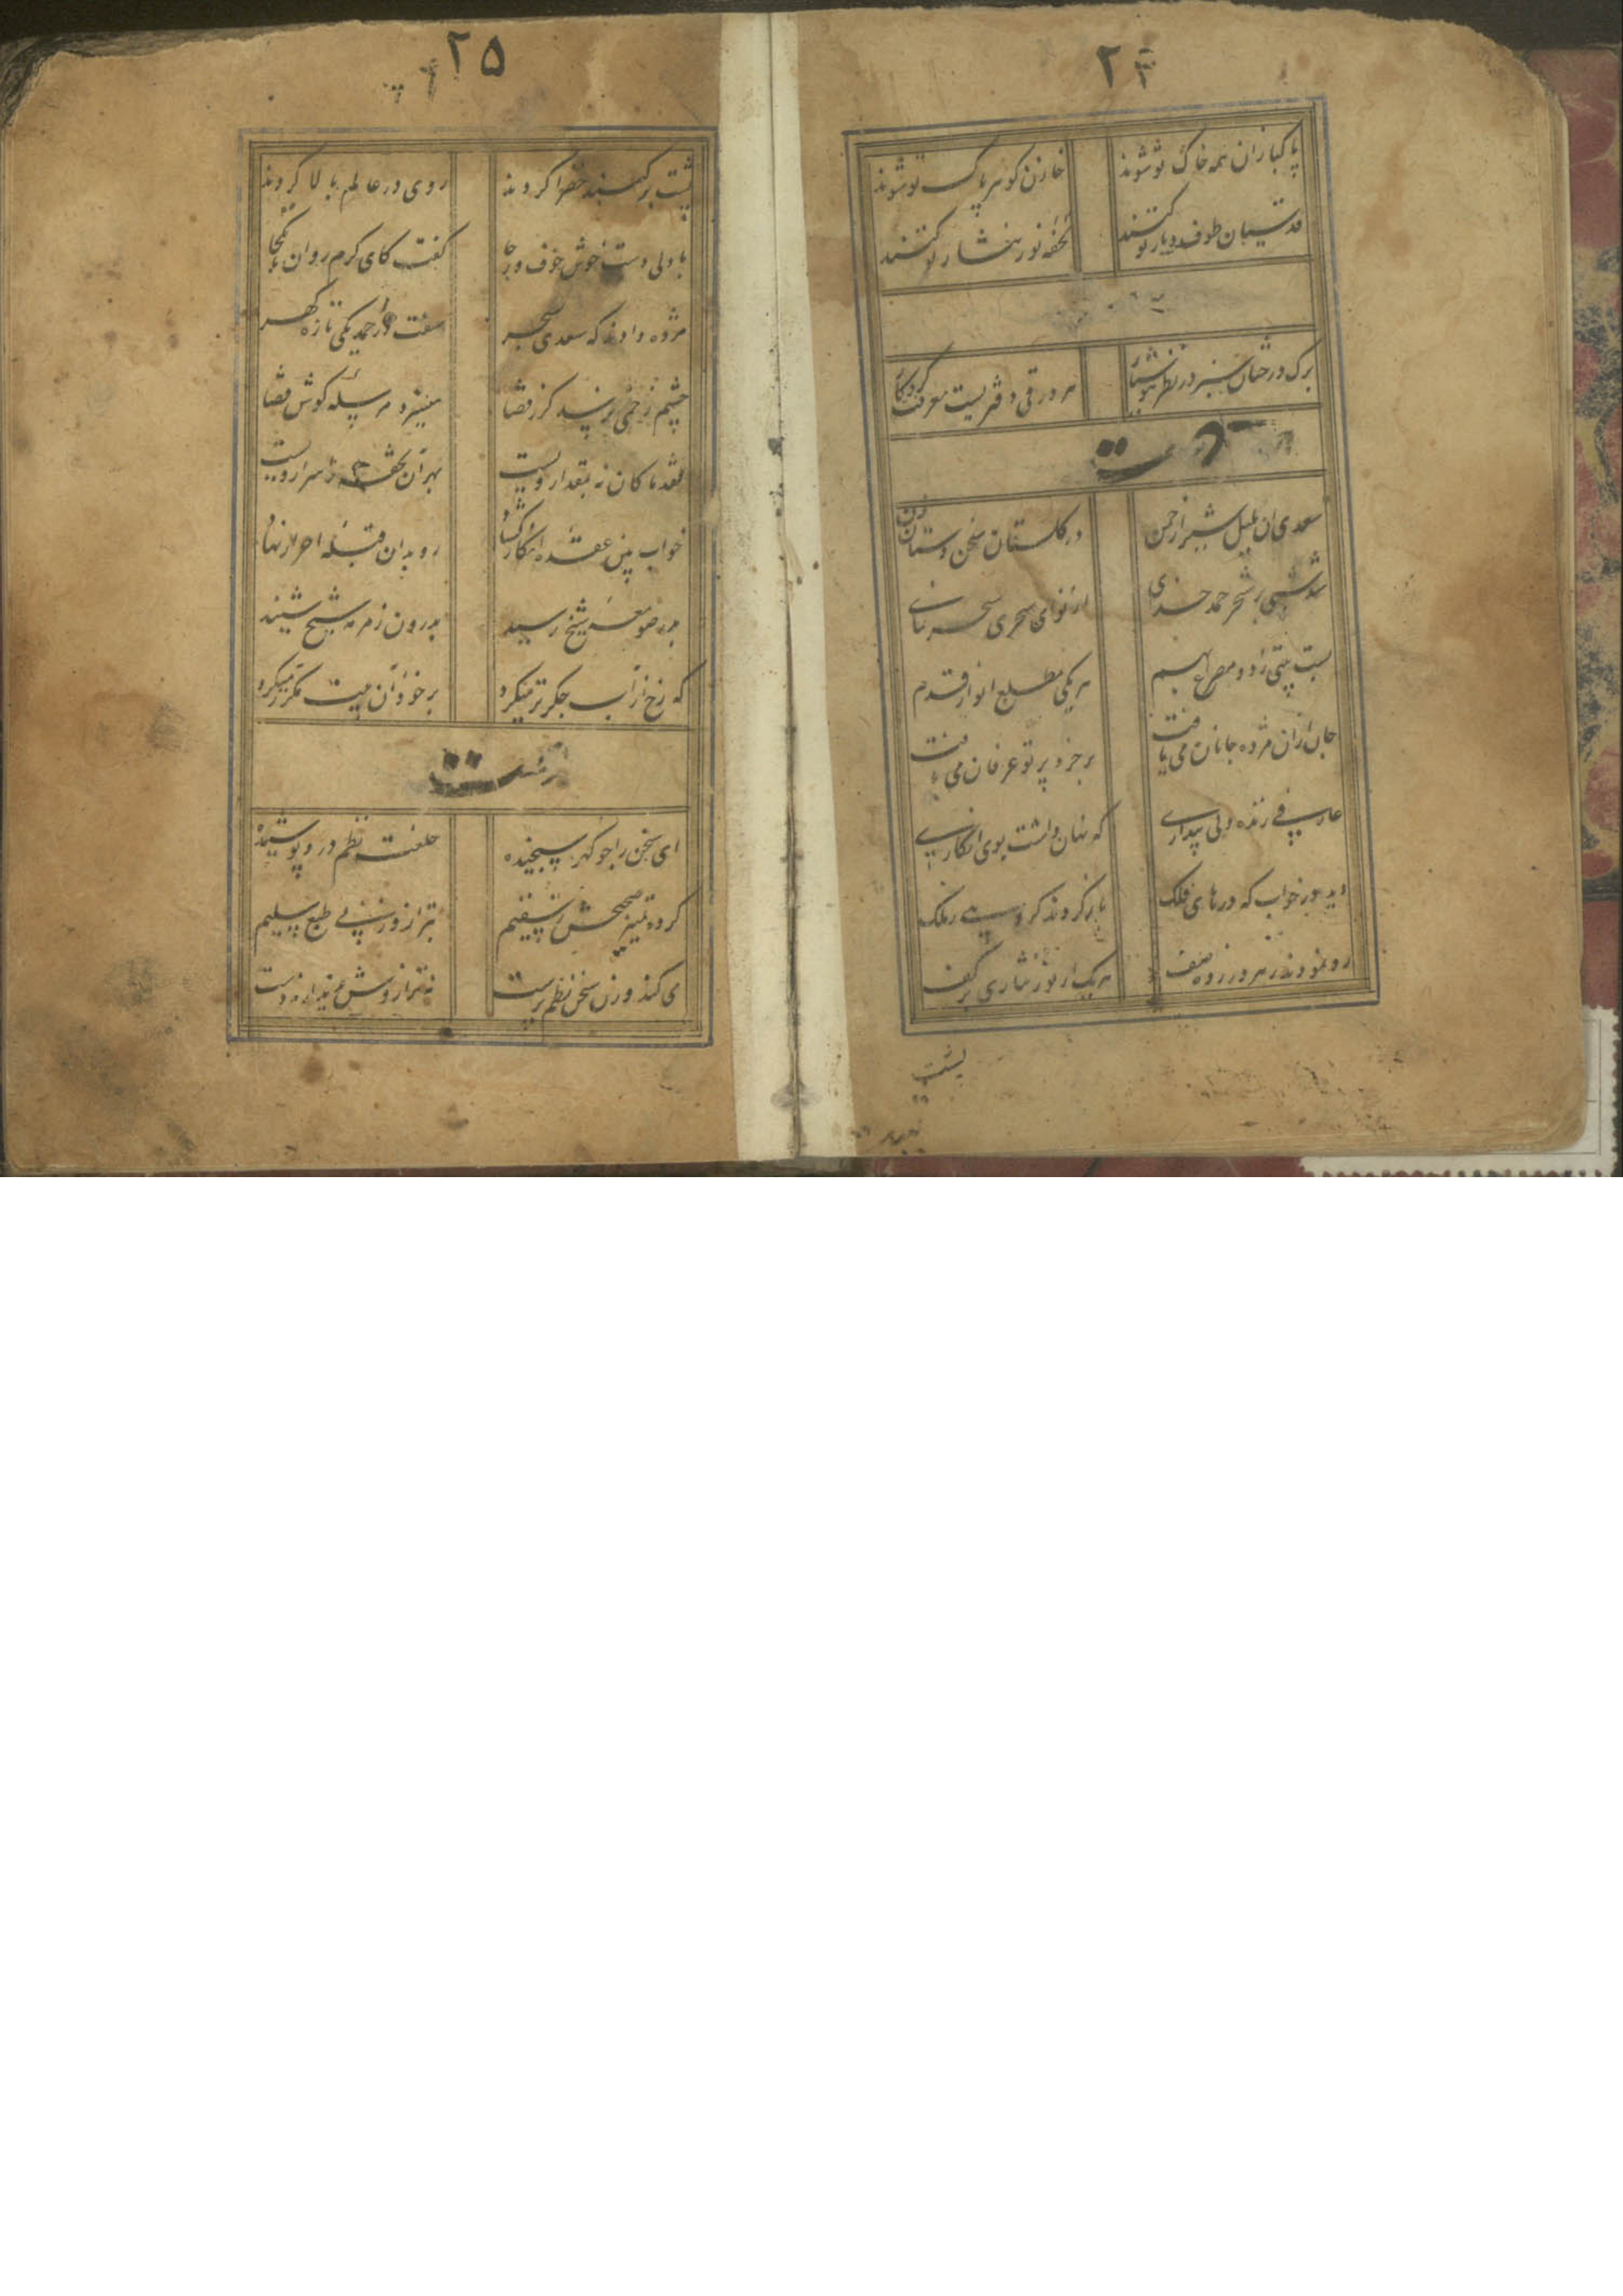 ۲۴
پاکبازان همه خاک تو شوند خازن کوهر پاک تو شوند
قدسیان طوف دیار تو کنند تحفه نور نثار تو کنند
برک درختان سبز در نظر هوشیار هر ورقی دفتریست معرفت کردکار
سعدی ان بلبل شیراز چمن در کلستان سخن دستان زن
شد شبی بر شجر حمد خدای از نوای سحری سحر نمای
بست بیتی ز دو مصراع بهم هر یکی مطلع انوار قدم
جان از ان مژده جانان می یافت بر خرد پرتو عرفان می یافت
عارفی زنده دلی بیداری که نهان داشت بوی انکاری
دید در خواب که درهای فلک باز کردند کروهی ز ملک
رو نمودند ز هر در زده صف هر یک از نور نثاری بر کف
پشت
۲۵
پشت بر کنبد خضرا کردند روی در عالم بالا کردند
با دلی دست خوش خوف و رجا کفت کای کرم روان تا بکجا
مژده دادند که سعدی بسحر سفت در حمد یکی تازه کهر
چشم زخمی نرسد کر ز قضا میسزد مرسله کوش قضا
نقد ما کان نه بمقدار ویست بهر آن تحفه ز اسرار ویست
خواب بین عقده انکار کشاد رو بدان قبله احرار نهاد
بدر صومعه شیخ رسید از درون زمزمه شیخ شنید
که رخ از آب جکر تر میکرد با خود آن بیت مکرر میکرد
ای سخن را چو کهر سنجیده خلعت نظم در و پوشیده
کرده تمییز صحیحش ز سقیم بترازوی طبع سلیم
می کند وزن سخن نظم پرست نه ترازوش پدیدار نه دست